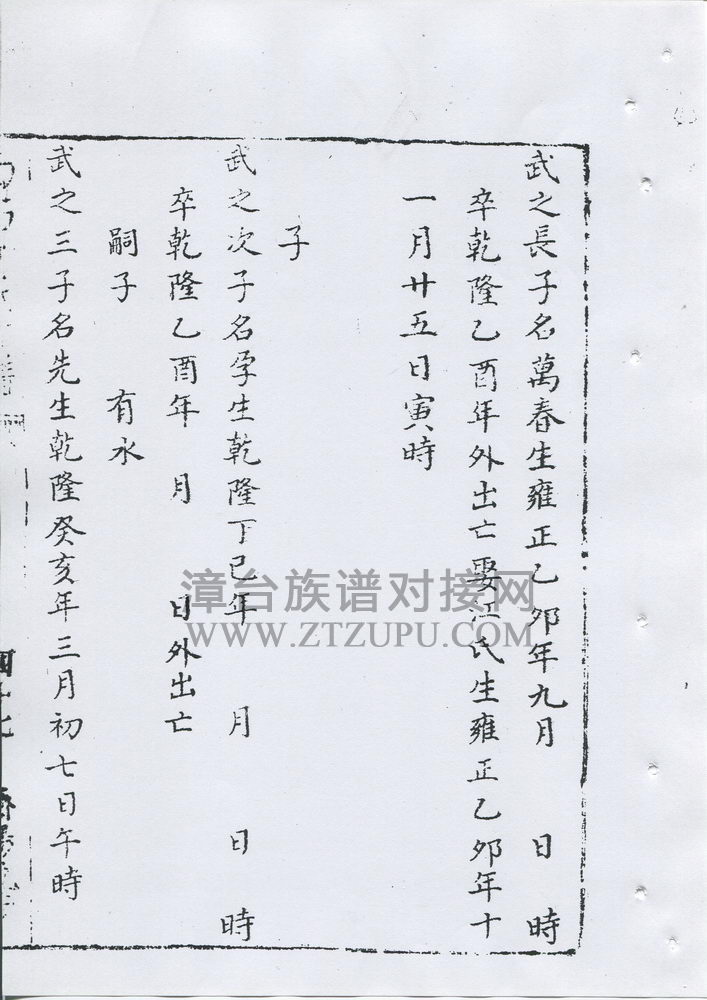 武之長子名萬春生雍正乙卯年九月 日 時
卒乾隆乙酉年外出亡娶江氏生雍正乙卯年十
一月廿五日寅時
子
武之次子名孕生乾隆丁巳年 月 日 時
卒乾隆乙酉年 月 日外出亡
嗣子 有永
武之三子名先生乾隆癸亥年三月初七日午時
漳台族谱对接网
WWW.ZTZUPU.COM